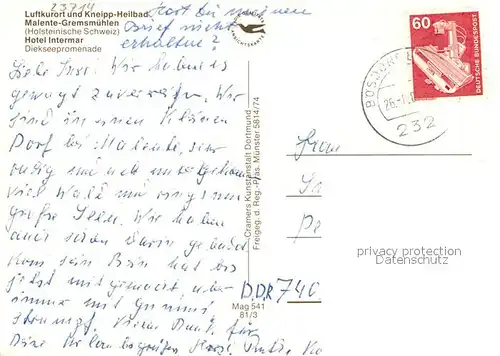 23714
Luftkurort und Kneipp-Heilbad
Malente-Gremsmühlen
(Holsteinische Schweiz)
Hotel Intermar
Diekseepromenade
Hast Du meinen
Brief nicht
erhalten?
Liebe Inge! Wir haben es
gewagt zu verreisen. Wir
sind in einem kleinen
Dorf bei Malente, sehr
ruhig und
viel Wald und ringsum
große Seen. Wir haben
auch schon darin gebadet
Kom sein Bein hat bis
jetzt mit gemacht aber
immer mit Gummi
strumpf. Vielen Dank für
Deine
Cramers Kunstanstalt Dortmund
Freigeg. d. Reg.-Präs. Münster 5814/74
Mag 541
81/3
60
DEUTSCHE BUNDESPOST
232
Frau
DDR 740
privacy protection
watermark